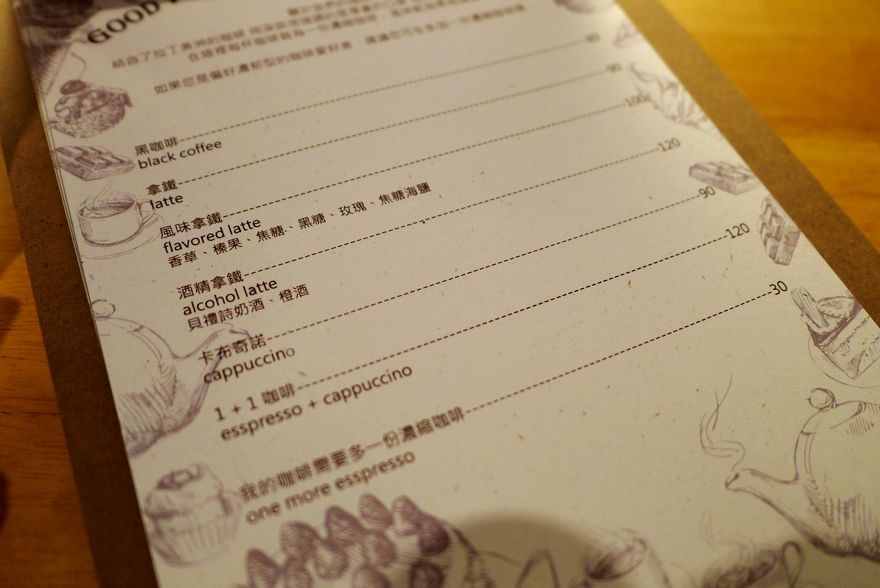 GOOD
結合了拉丁美洲的咖啡
在這裡每杯咖啡皆為一份濃縮咖啡，
如果您是偏好濃郁型的咖啡愛好者，建議您可多添加一份濃縮咖啡
黑咖啡 80
black coffee
拿鐵 90
latte
風味拿鐵 100
flavored latte
香草、榛果、焦糖、黑糖、玫瑰、焦糖海鹽
酒精拿鐵 120
alcohol latte
貝禮詩奶酒、橙酒
卡布奇諾 90
cappuccino
1 + 1 咖啡 120
esspresso + cappuccino
我的咖啡需要多一份濃縮咖啡 30
one more esspresso